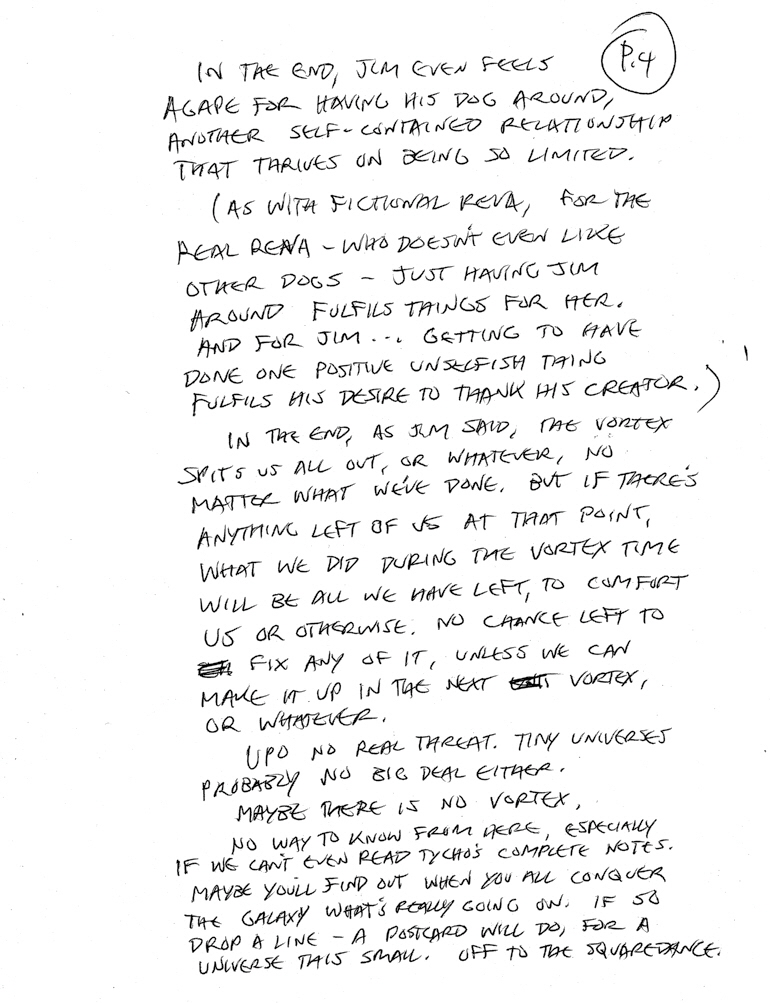 P.4
IN THE END, JIM EVEN FEELS
AGAPE FOR HAVING HIS DOG AROUND,
ANOTHER SELF-CONTAINED RELATIONSHIP
THAT THRIVES ON BEING SO LIMITED.
(AS WITH FICTIONAL REVA, FOR THE
REAL REVA - WHO DOESN'T EVEN LIKE
OTHER DOGS - JUST HAVING JIM
AROUND FULFILS THINGS FOR HER.
AND FOR JIM... GETTING TO HAVE
DONE ONE POSITIVE UNSELFISH THING
FULFILS HIS DESIRE TO THANK HIS CREATOR.)
IN THE END, AS JIM SAID, THE VORTEX
SPITS US ALL OUT, OR WHATEVER, NO
MATTER WHAT WE'VE DONE. BUT IF THERE'S
ANYTHING LEFT OF US AT THAT POINT,
WHAT WE DID DURING THE VORTEX TIME
WILL BE ALL WE HAVE LEFT, TO COMFORT
US OR OTHERWISE. NO CHANCE LEFT TO
FIX ANY OF IT, UNLESS WE CAN
MAKE IT UP IN THE NEXT VORTEX,
OR WHATEVER.
UPO NO REAL THREAT. TINY UNIVERSES
PROBABLY NO BIG DEAL EITHER.
MAYBE THERE IS NO VORTEX.
NO WAY TO KNOW FROM HERE, ESPECIALLY
IF WE CAN'T EVEN READ TYCHO'S COMPLETE NOTES.
MAYBE YOU'LL FIND OUT WHEN YOU ALL CONQUER
THE GALAXY WHAT'S REALLY GOING ON. IF SO
DROP A LINE - A POSTCARD WILL DO, FOR A
UNIVERSE THIS SMALL. OFF TO THE SQUAREDANCE.